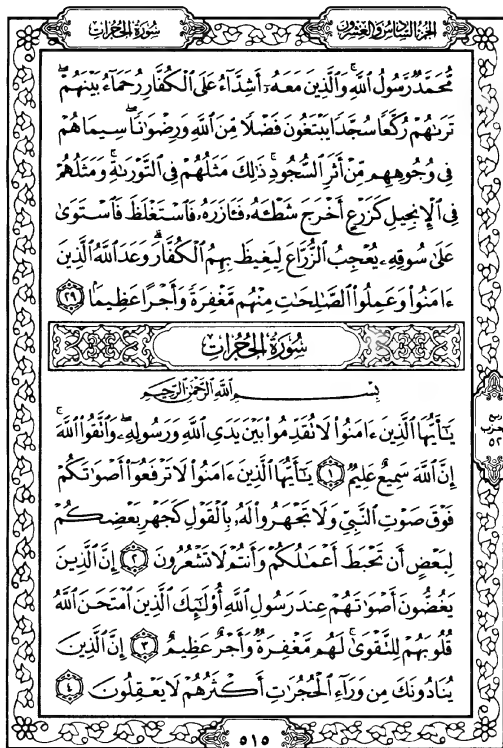 سُورَةُ الحُجُرَاتِ
الجُزْءُ السَّادِسُ وَالعِشْرُونَ
مُّحَمَّدٌ رَّسُولُ ٱللَّهِ ۚ وَٱلَّذِينَ مَعَهُۥٓ أَشِدَّآءُ عَلَى ٱلْكُفَّارِ رُحَمَآءُ بَيْنَهُمْ ۖ
تَرَىٰهُمْ رُكَّعًا سُجَّدًا يَبْتَغُونَ فَضْلًا مِّنَ ٱللَّهِ وَرِضْوَٰنًا ۖ سِيمَاهُمْ
فِى وُجُوهِهِم مِّنْ أَثَرِ ٱلسُّجُودِ ۚ ذَٰلِكَ مَثَلُهُمْ فِى ٱلتَّوْرَىٰةِ ۚ وَمَثَلُهُمْ
فِى ٱلْإِنجِيلِ كَزَرْعٍ أَخْرَجَ شَطْـَٔهُۥ فَـَٔازَرَهُۥ فَٱسْتَغْلَظَ فَٱسْتَوَىٰ
عَلَىٰ سُوقِهِۦ يُعْجِبُ ٱلزُّرَّاعَ لِيَغِيظَ بِهِمُ ٱلْكُفَّارَ ۗ وَعَدَ ٱللَّهُ ٱلَّذِينَ
ءَامَنُوا۟ وَعَمِلُوا۟ ٱلصَّٰلِحَٰتِ مِنْهُم مَّغْفِرَةً وَأَجْرًا عَظِيمًۢا ٢٩
سُورَةُ الحُجُرَاتِ
بِسْمِ ٱللَّهِ ٱلرَّحْمَٰنِ ٱلرَّحِيمِ
يَٰٓأَيُّهَا ٱلَّذِينَ ءَامَنُوا۟ لَا تُقَدِّمُوا۟ بَيْنَ يَدَىِ ٱللَّهِ وَرَسُولِهِۦ ۖ وَٱتَّقُوا۟ ٱللَّهَ ۚ
إِنَّ ٱللَّهَ سَمِيعٌ عَلِيمٌ ١ يَٰٓأَيُّهَا ٱلَّذِينَ ءَامَنُوا۟ لَا تَرْفَعُوٓا۟ أَصْوَٰتَكُمْ
فَوْقَ صَوْتِ ٱلنَّبِىِّ وَلَا تَجْهَرُوا۟ لَهُۥ بِٱلْقَوْلِ كَجَهْرِ بَعْضِكُمْ
لِبَعْضٍ أَن تَحْبَطَ أَعْمَٰلُكُمْ وَأَنتُمْ لَا تَشْعُرُونَ ٢ إِنَّ ٱلَّذِينَ
يَغُضُّونَ أَصْوَٰتَهُمْ عِندَ رَسُولِ ٱللَّهِ أُو۟لَٰٓئِكَ ٱلَّذِينَ ٱمْتَحَنَ ٱللَّهُ
قُلُوبَهُمْ لِلتَّقْوَىٰ ۚ لَهُم مَّغْفِرَةٌ وَأَجْرٌ عَظِيمٌ ٣ إِنَّ ٱلَّذِينَ
يُنَادُونَكَ مِن وَرَآءِ ٱلْحُجُرَٰتِ أَكْثَرُهُمْ لَا يَعْقِلُونَ ٤
٥١٥